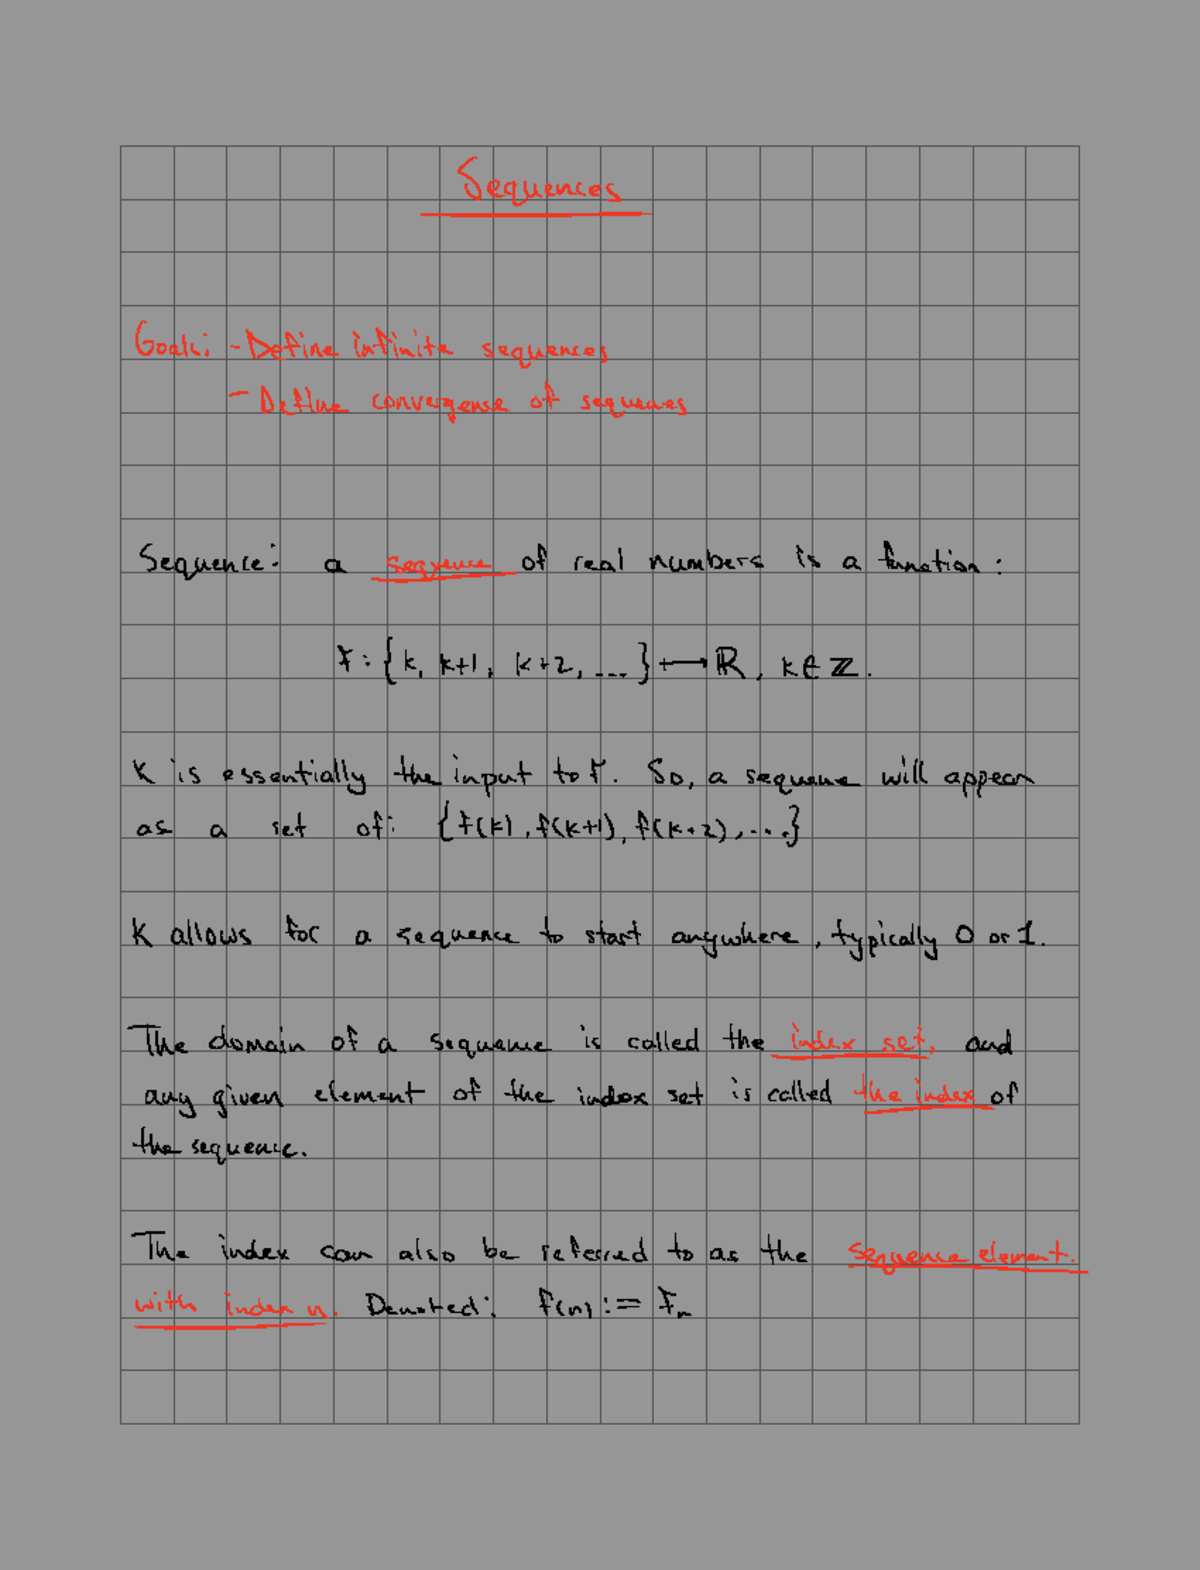 Sequences
Goals: - Define infinite sequences
- Define convergence of sequences
Sequence: a sequence of real numbers is a function:
f: {k, k+1, k+2, ...} ⟼ ℝ, k∈ℤ.
K is essentially the input to f. So, a sequence will appear
as a set of: {f(k), f(k+1), f(k+2), ...}
K allows for a sequence to start anywhere, typically 0 or 1.
The domain of a sequence is called the index set, and
any given element of the index set is called the index of
the sequence.
The index can also be referred to as the sequence element
with index n. Denoted: f(n) := fₙ